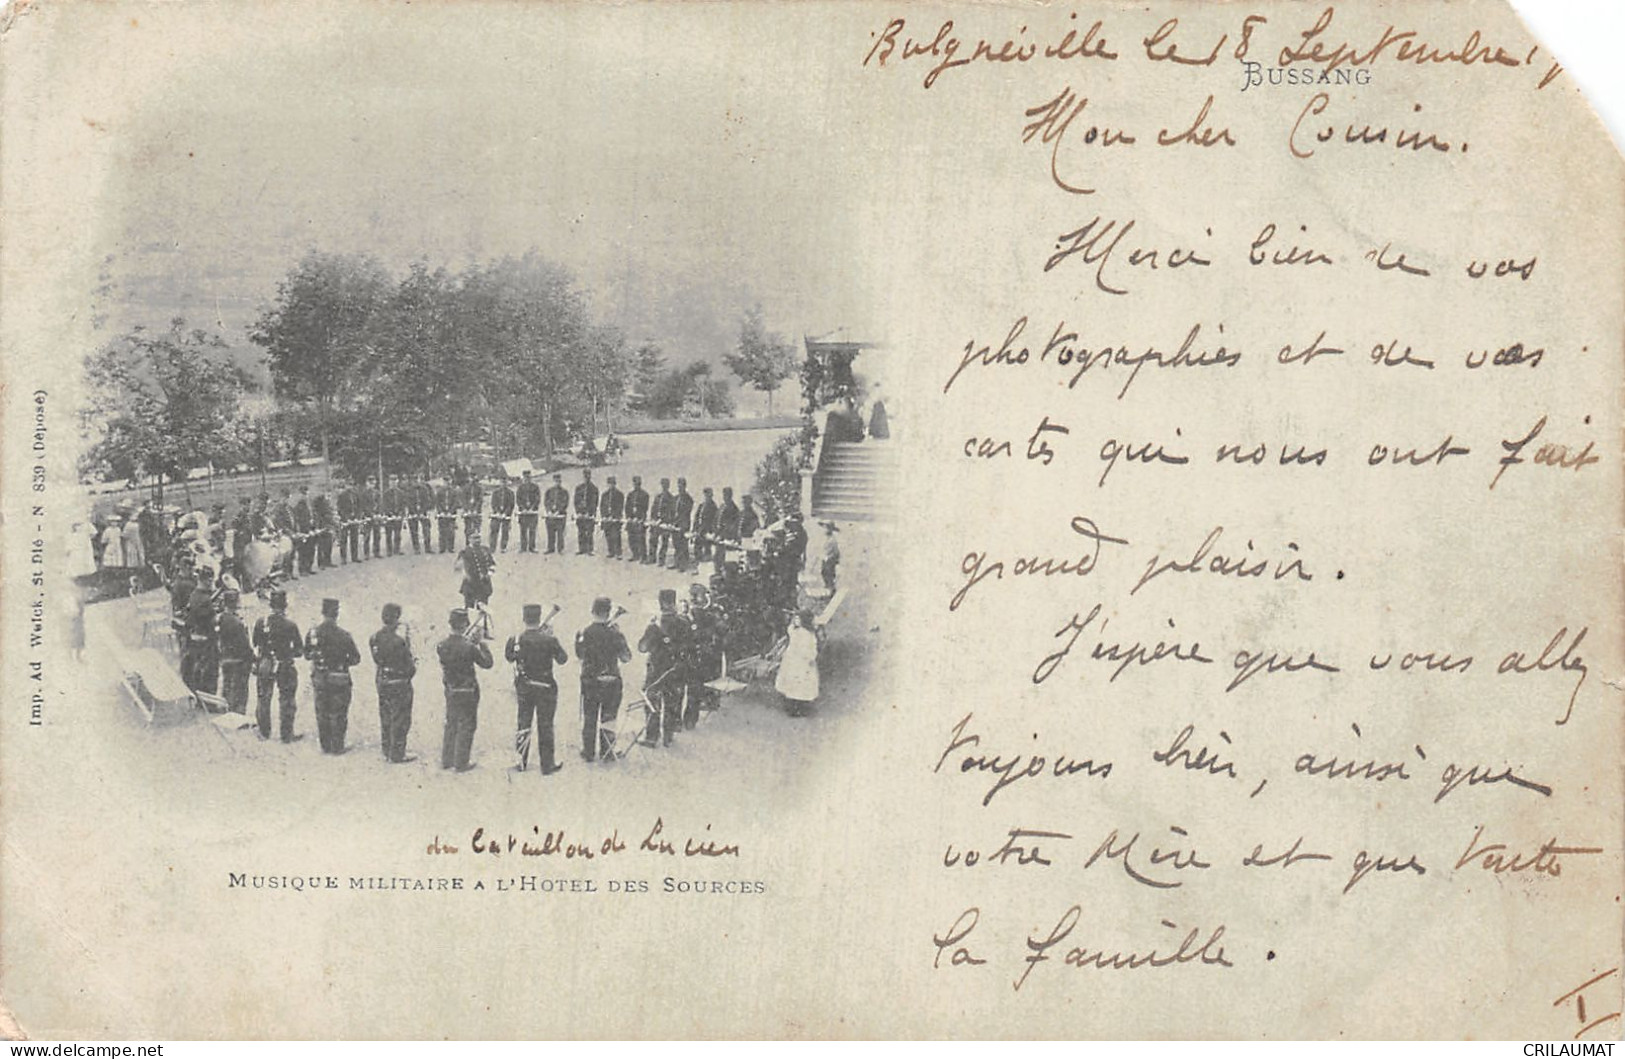 Bulgnéville le 18 Septembre 1
BUSSANG
Mon cher Cousin.
Merci bien de vos
photographies et de vos
cartes qui nous ont fait
grand plaisir.
J'espère que vous allez
toujours bien, ainsi que
votre Mère et que toute
la famille.
I
du bataillon de Lucien
MUSIQUE MILITAIRE A L'HOTEL DES SOURCES
Imp. Ad Weick, St Dié - N 839 (Déposé)
CRILAUMAT